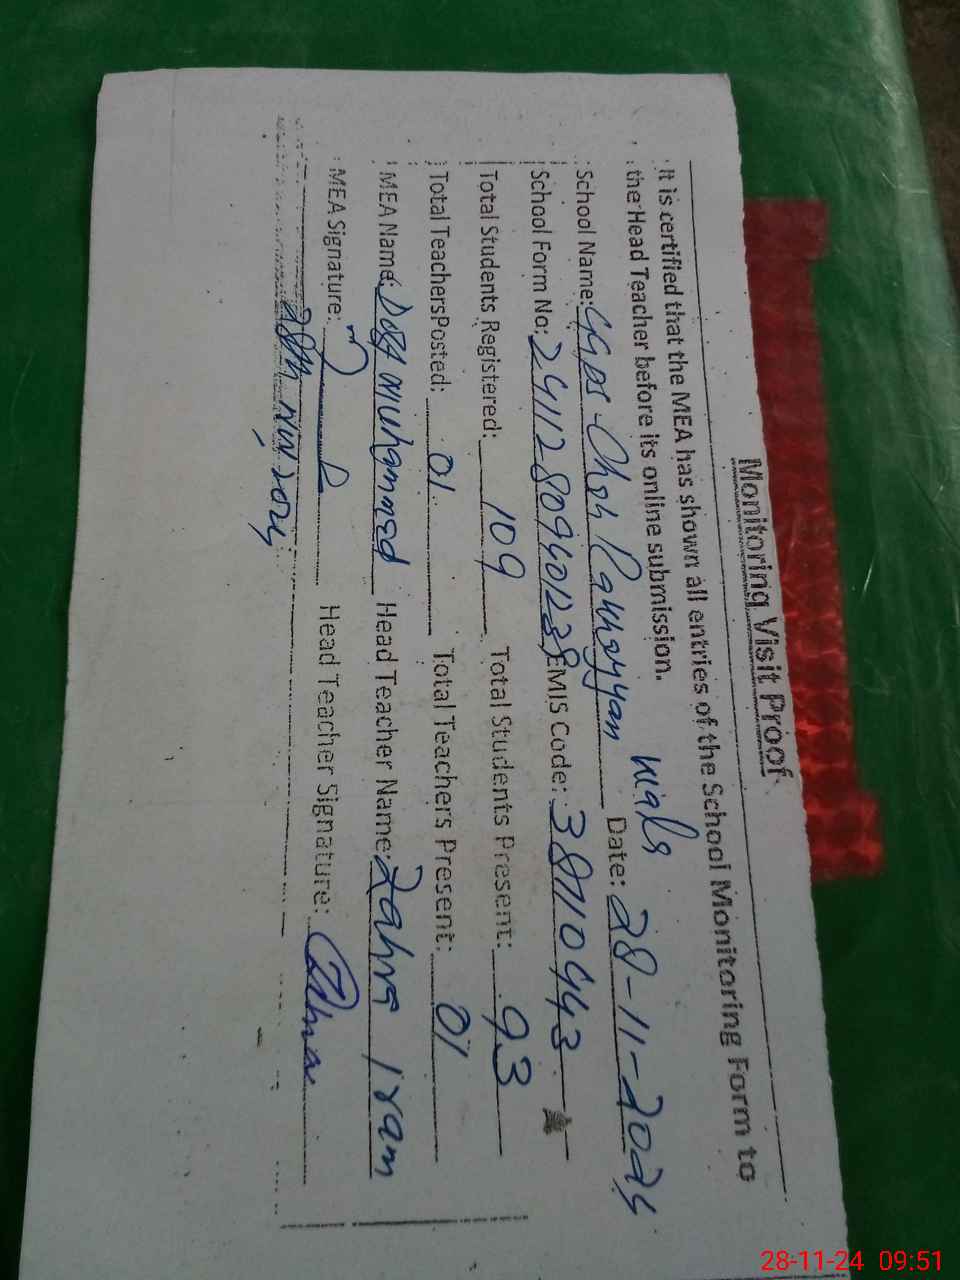 Monitoring Visit Proof
It is certified that the MEA has shown all entries of the School Monitoring Form to
the Head Teacher before its online submission.
School Name: GGPS Chah Date: 28-11-2024
School Form No: EMIS Code: 38110443
Total Students Registered: 109 Total Students Present: 93
Total TeachersPosted: 01 Total Teachers Present: 01
MEA Name: Dost Muhammad Head Teacher Name: Zahra Iram
MEA Signature: Head Teacher Signature:
28th Nov 2024
28-11-24 09:51